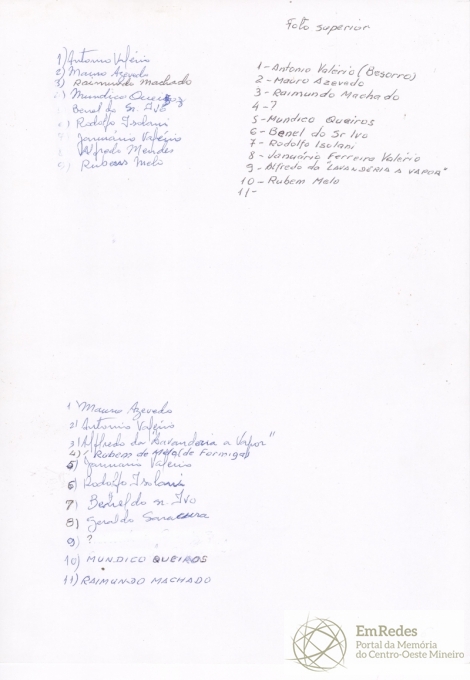 Foto superior
1) Antonio Valério
2) Mauro Azevedo
3) Raimundo Machado
4) Mundico Queiroz
Benel do Sr. Ivo
6) Rodolfo Isolani
Januário Valério
8 Alfredo Mendes
9) Rubens Melo
1- Antonio Valério (Besorro)
2- Mauro Azevedo
3- Raimundo Machado
4-?
5- Mundico Queiros
6- Benel do Sr Ivo
7- Rodolfo Isolani
8- Januário Ferreira Valério
9- Alfredo da "LAVANDERIA A VAPOR"
10- Rubem Melo
11-
1 Mauro Azevedo
2) Antonio Valério
3) Alfredo da "Lavanderia a Vapor"
4) (Rubem de Melo (de Formiga)
5) Januario Valério
6) Rodolfo Isolani
7) Benel do sr. Ivo
8) Geraldo
9) ?
10) MUNDICO QUEIROS
11) RAIMUNDO MACHADO
EmRedes
Portal da Memória
do Centro-Oeste Mineiro